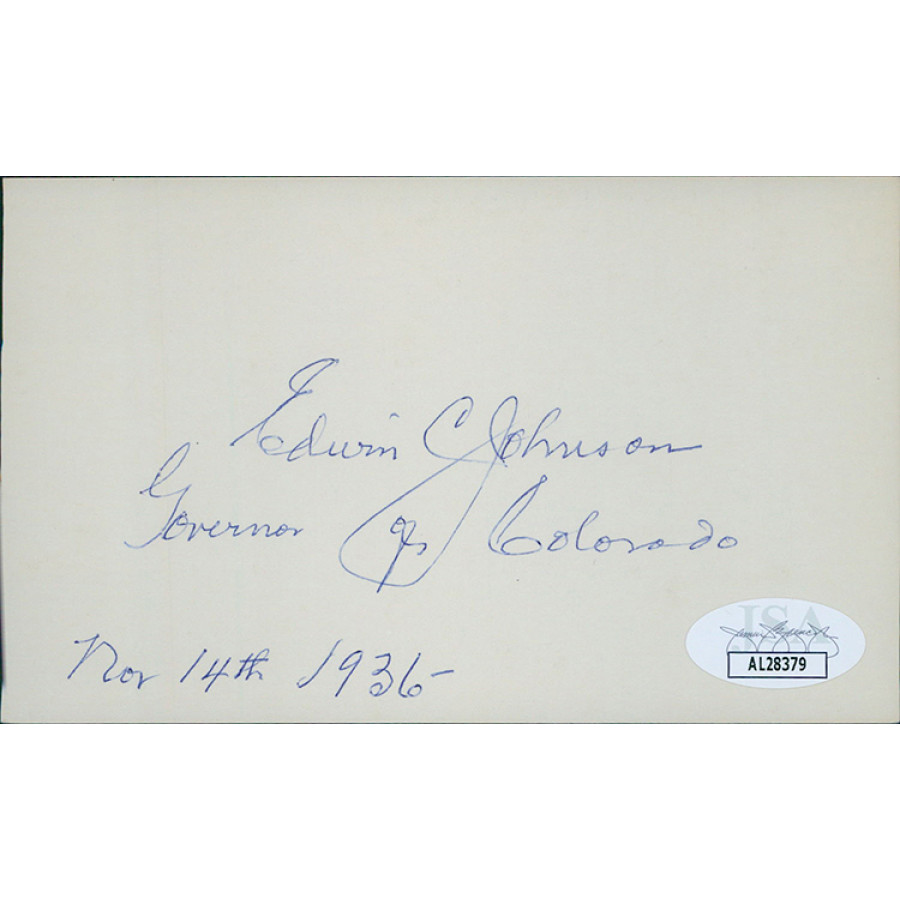 Edwin C Johnson
Governor of Colorado
Nov 14th 1936
JSA
AL28379